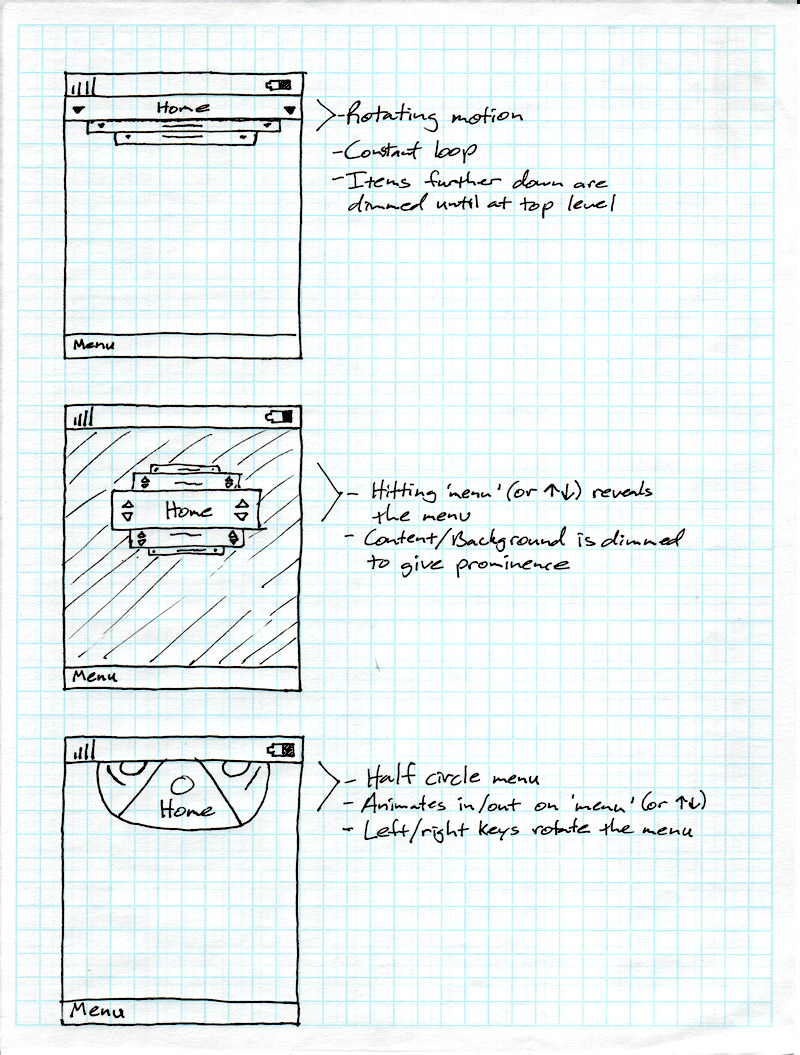 Home
- Rotating motion
- Constant loop
- Items further down are
dimmed until at top level
Menu
Home
- Hitting 'menu' (or ↑↓) reveals
the menu
- Content/Background is dimmed
to give prominence
Menu
Home
- Half circle menu
- Animates in/out on 'menu' (or ↑↓)
- Left/right keys rotate the menu
Menu